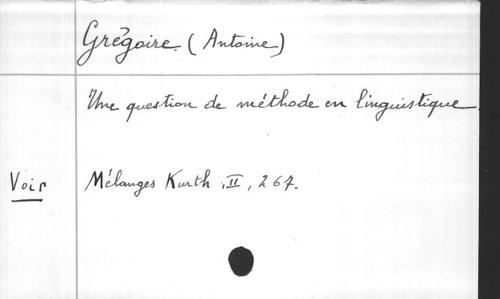 Grégoire (Antoine)
Une question de méthode en linguistique.
Voir Mélanges Kurth, II, 267.